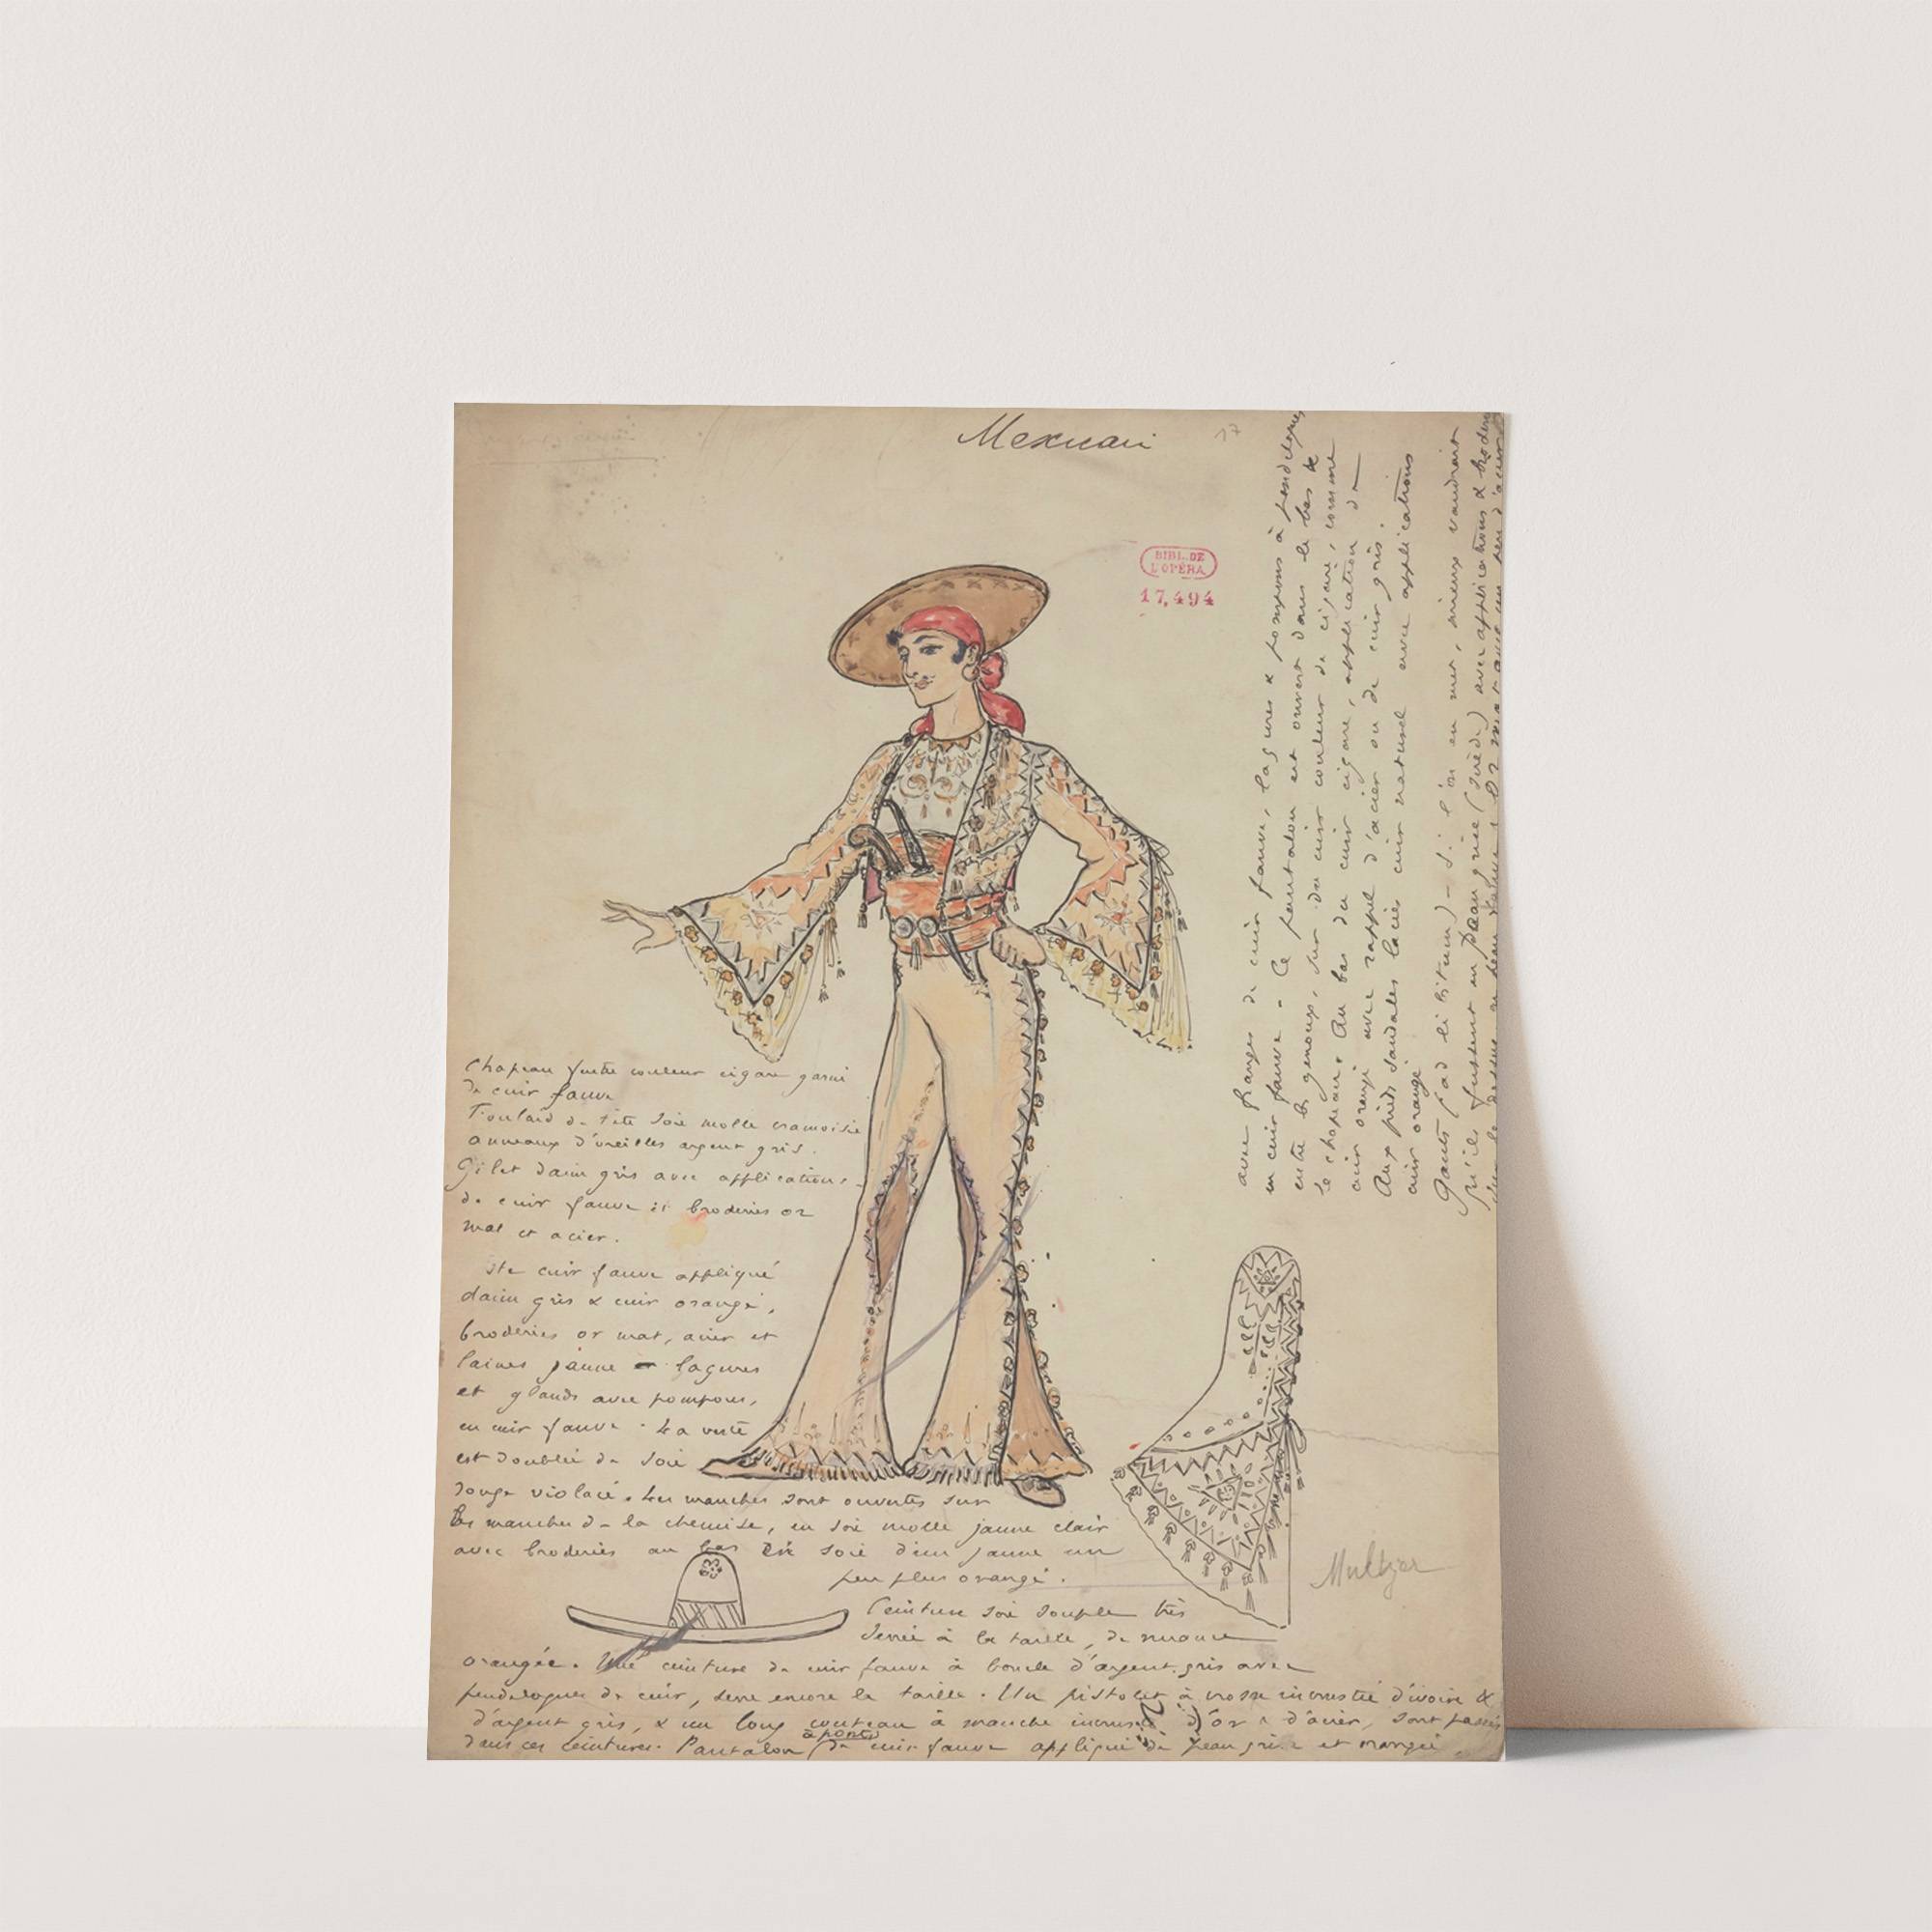 Mexicain
17
BIBL. DE
L'OPÉRA
17,494
Chapeau feutre couleur cigare garni
de cuir fauve
Foulard de tête soie molle cramoisie
anneaux d'oreilles argent gris.
Gilet daim gris avec applications
de cuir fauve et broderies or
mat et acier.
ste cuir fauve appliqué
daim gris & cuir orangé,
broderies or mat, acier et
laines jaune - laçures
et glands avec pompons,
en cuir fauve. La veste
est doublée de soie
rouge violacé. Les manches sont ouvertes sur
les manches de la chemise, en soie molle jaune clair
avec broderies au bas de soie d'un jaune un
peu plus orangé.
Ceinture soie souple très
serrée à la taille, de nuance
orangée. Une ceinture de cuir fauve à boucle d'argent gris avec
pendeloques de cuir, serre encore la taille. Un pistolet à crosse incrusté d'ivoire &
d'argent gris, & un long couteau à manche incrusté d'or & d'acier, sont passés
dans ces ceintures. Pantalon à ponts de cuir fauve appliqué de peau grise et orangée
avec franges de cuir fauve, laçures & pompons à pendeloques
en cuir fauve - Ce pantalon est ouvert dans le bas &
entre les genoux, sur du cuir couleur de cigare, comme
le chapeau. Au bas du cuir cigare, application de
cuir orangé avec rappel d'acier ou de cuir gris.
Aux pieds sandales lacées cuir naturel avec applications
cuir orangé
Gants (ad libitum) - si l'on en met, mieux vaudrait
qu'ils fussent en peau grise (suède) avec applications & broderies
Multzer